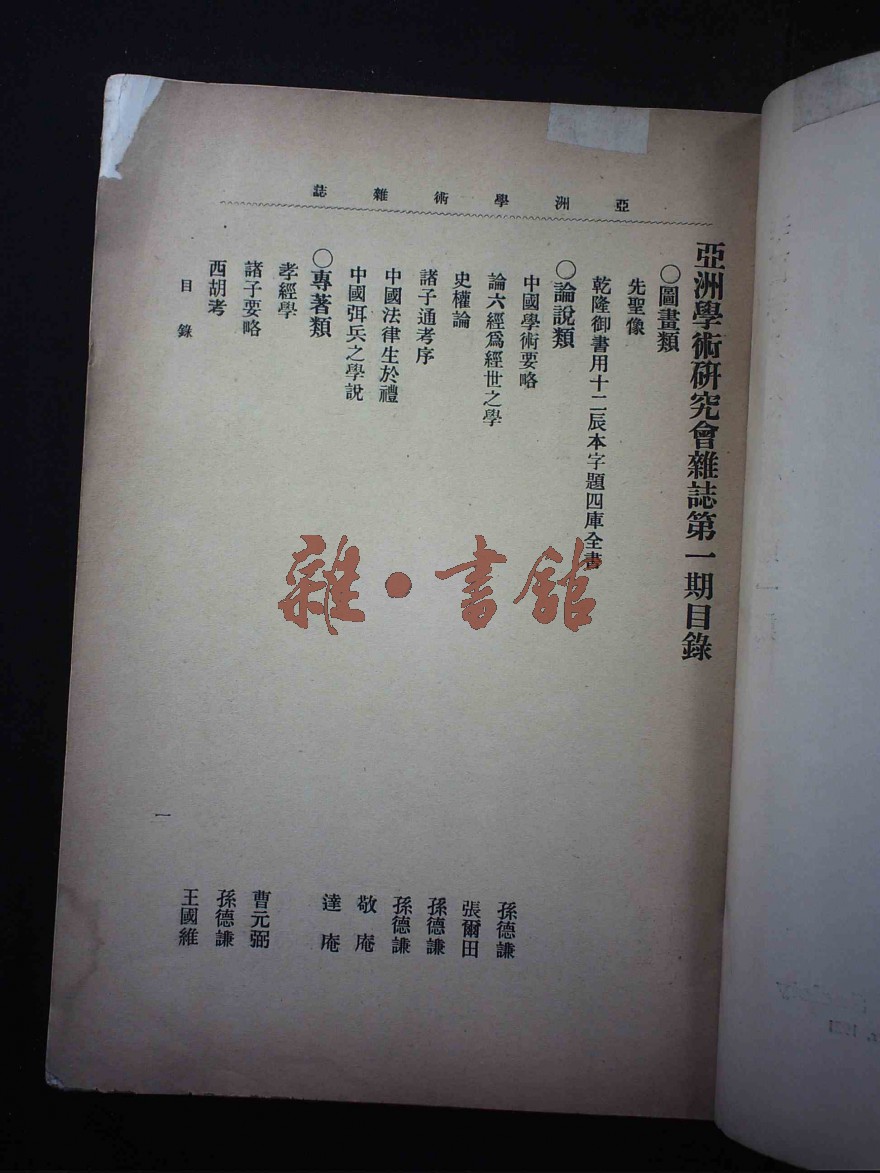 亞洲學術雜誌
亞洲學術研究會雜誌第一期目錄
○圖畫類
先聖像
乾隆御書用十二辰本字題四庫全書
○論說類
中國學術要略 孫德謙
論六經爲經世之學 張爾田
史權論 孫德謙
諸子通考序 孫德謙
中國法律生於禮 敬庵
中國弭兵之學說 達庵
○專著類
孝經學 曹元弼
諸子要略 孫德謙
西胡考 王國維
目錄
一
雜·書館
1921